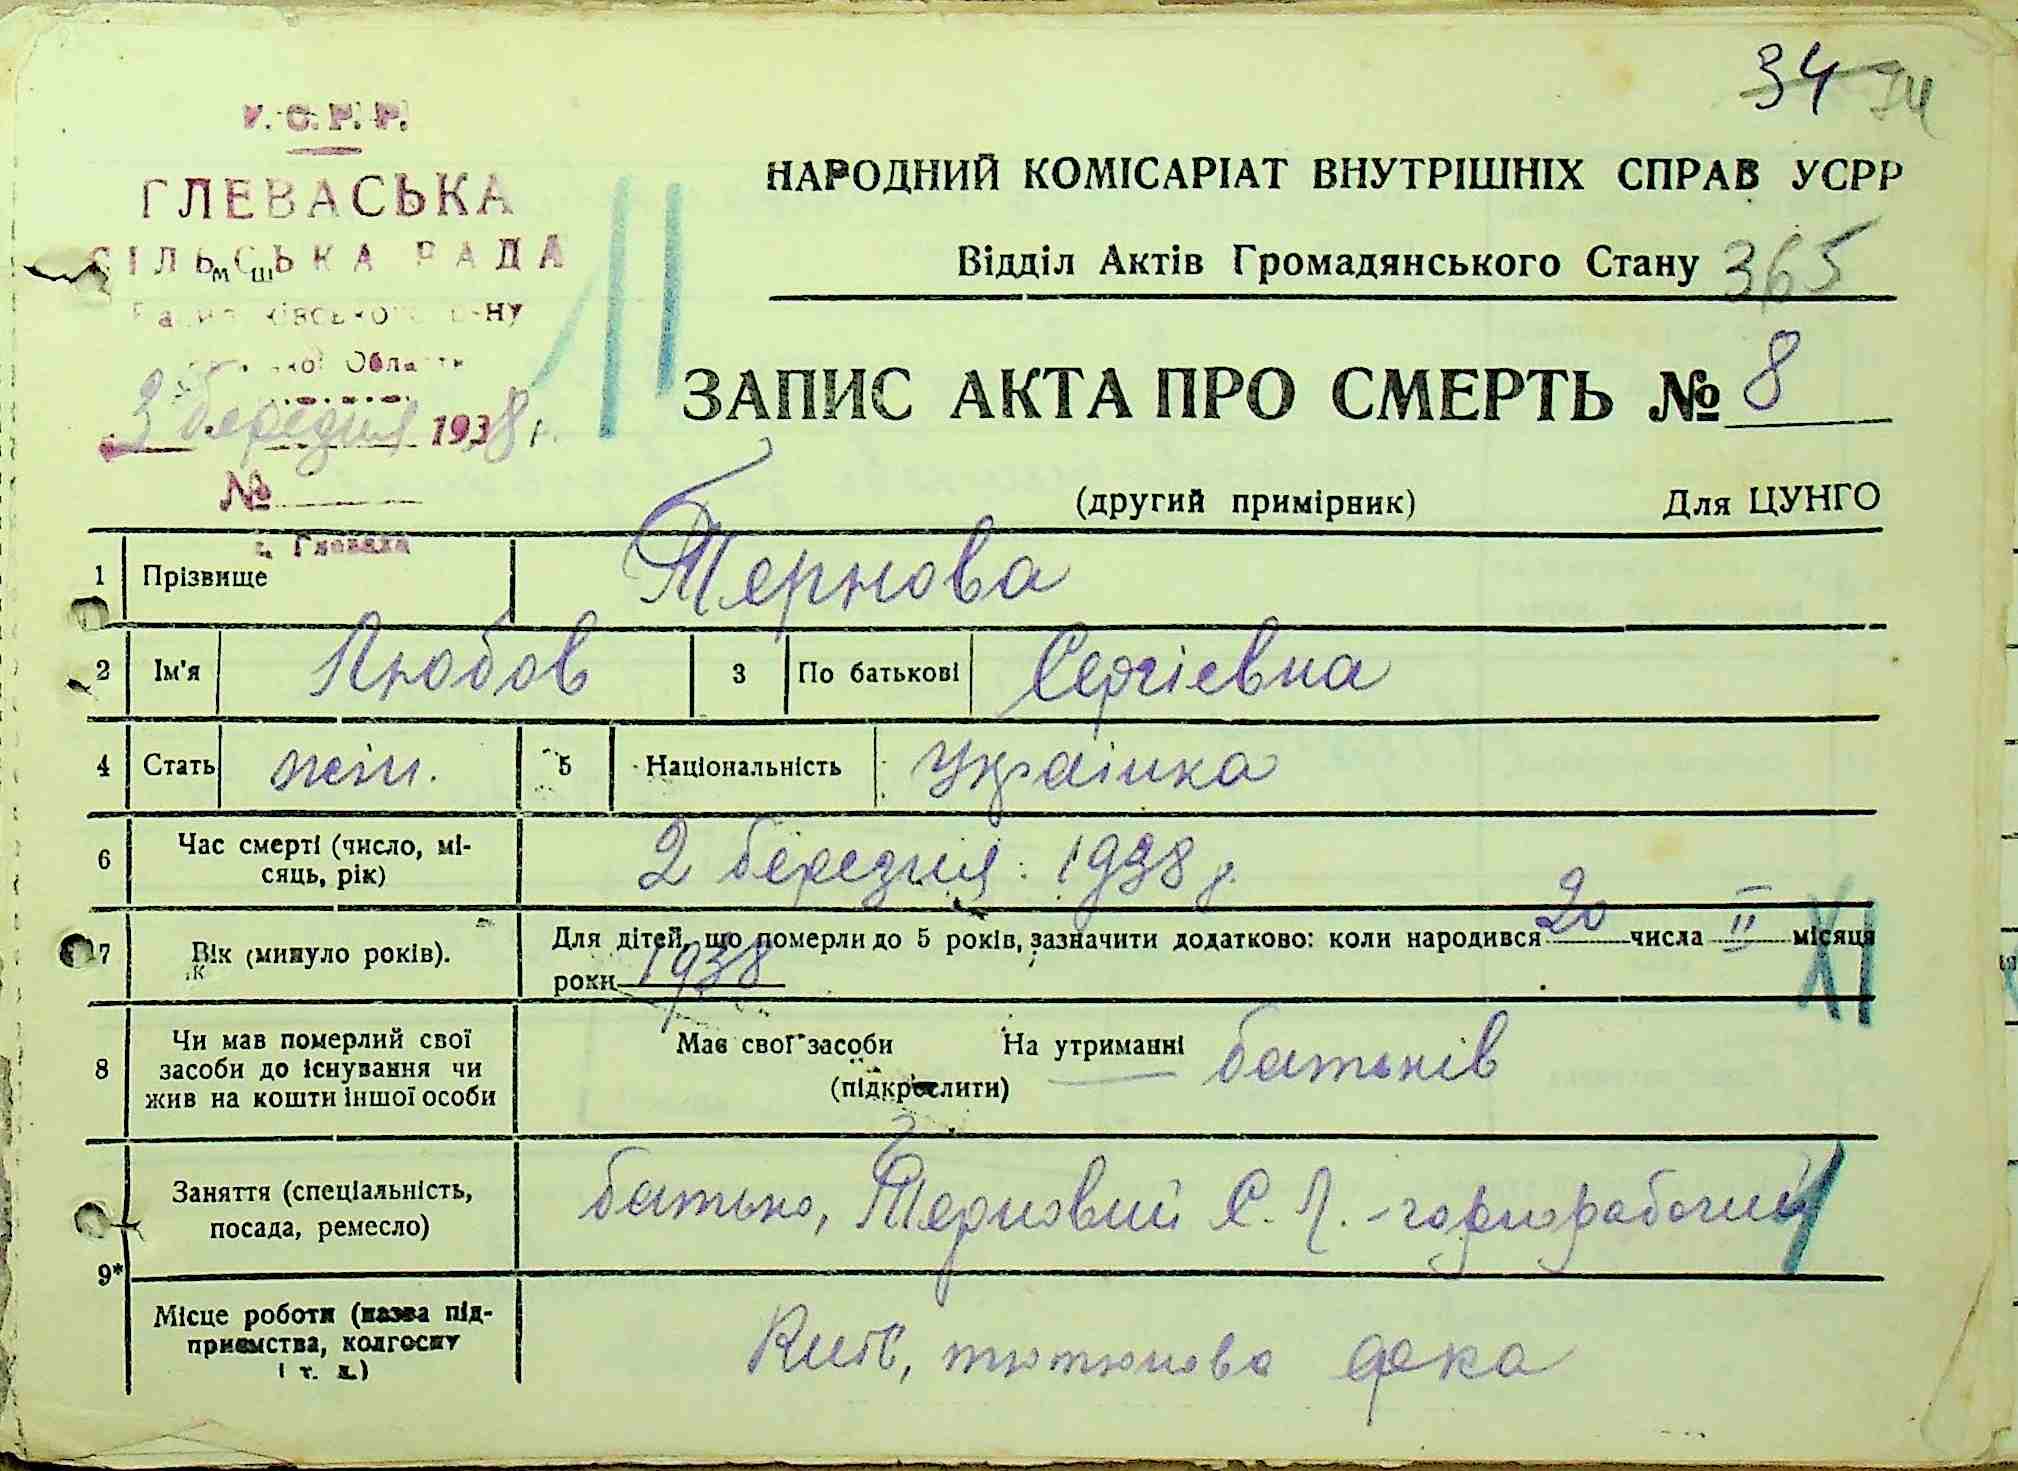 34 34
У.С.Р.Р.
ГЛЕВАСЬКА
СІЛЬСЬКА РАДА
Області
3 березня 1938 р.
№
с. Глеваха
НАРОДНИЙ КОМІСАРІАТ ВНУТРІШНІХ СПРАВ УСРР
Відділ Актів Громадянського Стану 365
ЗАПИС АКТА ПРО СМЕРТЬ № 8
(другий примірник) Для ЦУНГО
1 Прізвище Тернова
2 Ім'я Любов 3 По батькові Сергієвна
4 Стать жін. 5 Національність Українка
6 Час смерті (число, мі-
сяць, рік) 2 березня 1938 р.
7 Вік (минуло років). Для дітей, що померли до 5 років, зазначити додатково: коли народився 20 числа II місяця
роки 1938
XI
8 Чи мав померлий свої
засоби до існування чи
жив на кошти іншої особи
Має свої засоби На утриманні батьків
(підкреслити)
9* Заняття (спеціальність,
посада, ремесло)
батько, Терновий С. Л. - чорнорабочий
Місце роботи (назва під-
приємства, колгоспу
і т. д.)
Київ, тютюнова ф-ка